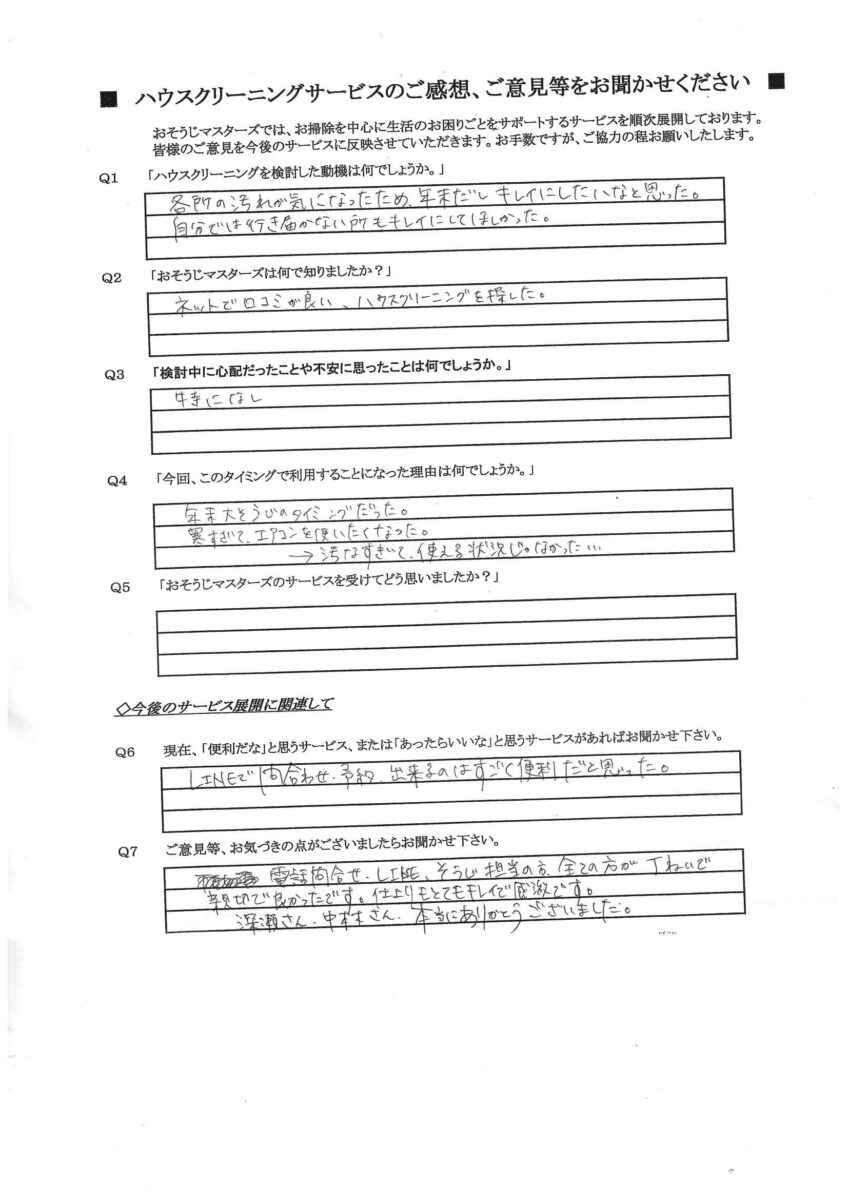 ■ ハウスクリーニングサービスのご感想、ご意見等をお聞かせください ■
おそうじマスターズでは、お掃除を中心に生活のお困りごとをサポートするサービスを順次展開しております。
皆様のご意見を今後のサービスに反映させていただきます。お手数ですが、ご協力の程お願いしたします。
Q1 「ハウスクリーニングを検討した動機は何でしょうか。」
各所の汚れが気になったため、年末だし キレイにしたいなと思った。
自分では行き届かない所もキレイにしてほしかった。
Q2 「おそうじマスターズは何で知りましたか？」
ネットで口コミが良い、ハウスクリーニングを探した。
Q3 「検討中に心配だったことや不安に思ったことは何でしょうか。」
特になし
Q4 「今回、このタイミングで利用することになった理由は何でしょうか。」
年末大そうじのタイミングだった。
寒すぎて、エアコンを使いたくなった。
→汚なすぎて、使える状況じゃなかった…
Q5 「おそうじマスターズのサービスを受けてどう思いましたか？」
◇今後のサービス展開に関連して
Q6 現在、「便利だな」と思うサービス、または「あったらいいな」と思うサービスがあればお聞かせ下さい。
LINEで問合わせ・予約、出来るのはすごく便利だと思った。
Q7 ご意見等、お気づきの点がございましたらお聞かせ下さい。
電話問合せ・LINE、そうじ担当の方、全ての方が丁ねいで
親切で良かったです。仕上りもとてもキレイで感激です。
深瀬さん、中本さん、本当にありがとうございました。